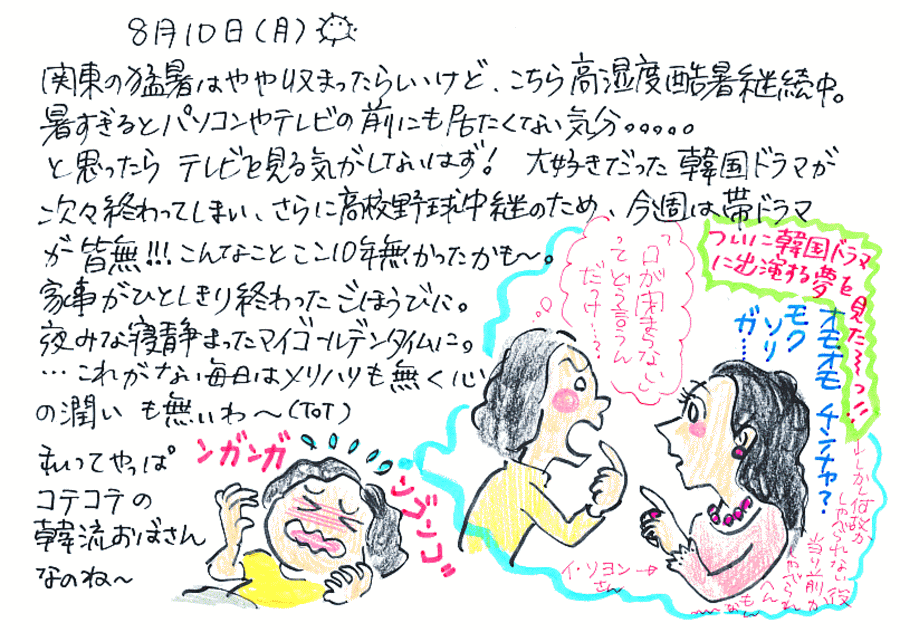 8月10日(月)
関東の猛暑はやや収まったらしいけど、こちら高湿度酷暑継続中。
暑すぎるとパソコンやテレビの前にも居たくない気分。。。。。
と思ったら テレビを見る気がしないはず! 大好きだった韓国ドラマが
次々終わってしまい、さらに高校野球中継のため、今週は帯ドラマ
が皆無!!! こんなことここ10年無かったかも〜。
家事がひとしきり終わったごほうびに。
夜みな寝静まったマイゴールデンタイムに。
…これがない毎日はメリハリも無く心
の潤いも無いわ〜(ToT)
私ってやっぱ
コテコテの
韓流おばさん
なのね〜
ンガンガ
ンゴンゴ
「口が閉まらない」
ってどう言うん
だっけ…?
ついに韓国ドラマ
に出演する夢を
見た〜っ!!
オモオモ チンチャ?
モク
ソリ
ガ…
しかし何故か
しゃべられない役
当り前か
しゃべられ
へん
もん
なぁ
イ・ソヨン→
さん